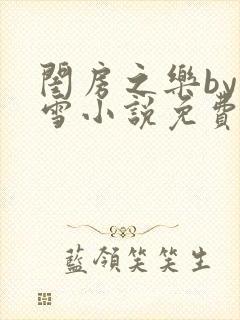 閨房之樂by
雪小說免費
藍領笑笑生